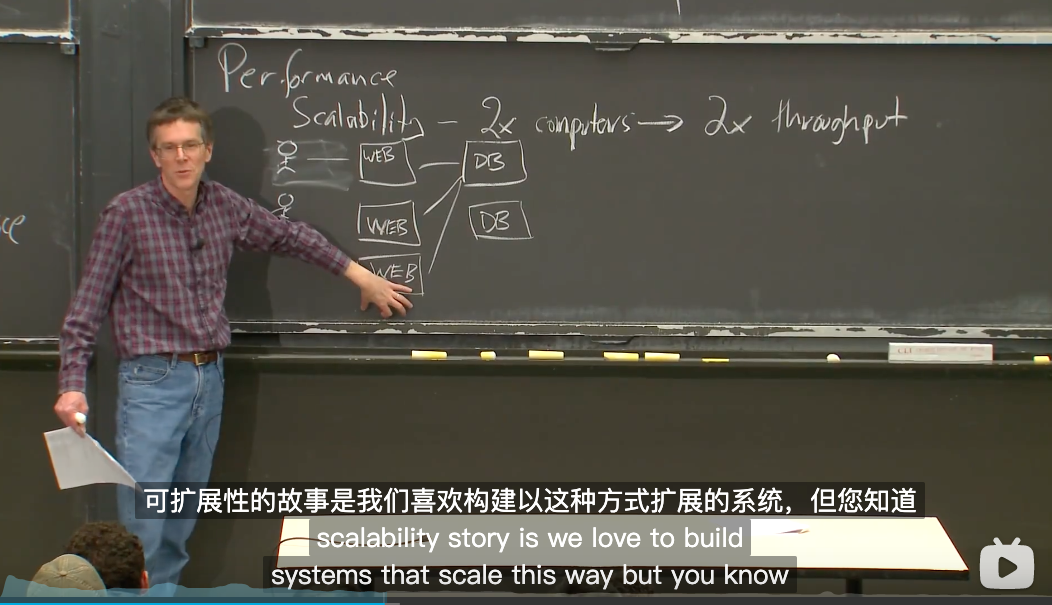 Performance
Scalability — 2x computers → 2x throughput
WEB DB
WEB DB
WEB
可扩展性的故事是我们喜欢构建以这种方式扩展的系统，但您知道
scalability story is we love to build
systems that scale this way but you know